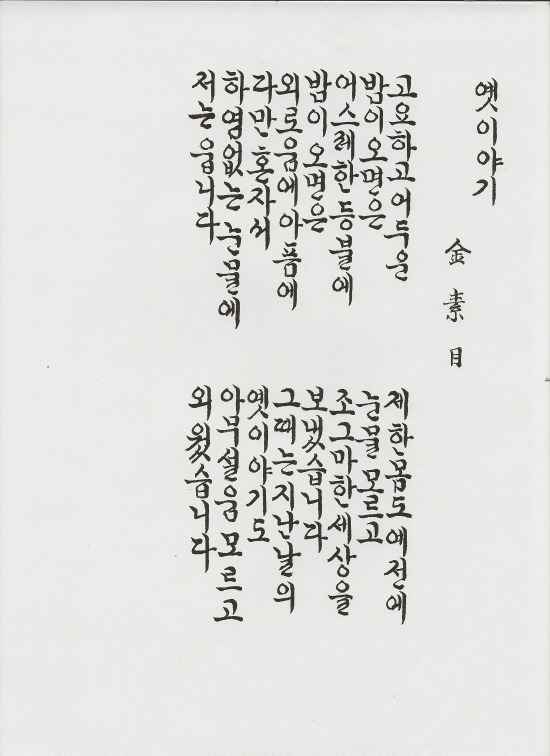 옛이야기
金素目
고요하고 어두운
밤이 오면은
어스레한 등불에
밤이 오면은
외로움에 아픔에
다만 혼자서
하염없는 눈물에
저는 웁니다
제 한 몸도 예전에
눈물 모르고
조그마한 세상을
보냈습니다
그때는 지난날의
옛이야기도
아무 설움 모르고
외웠습니다